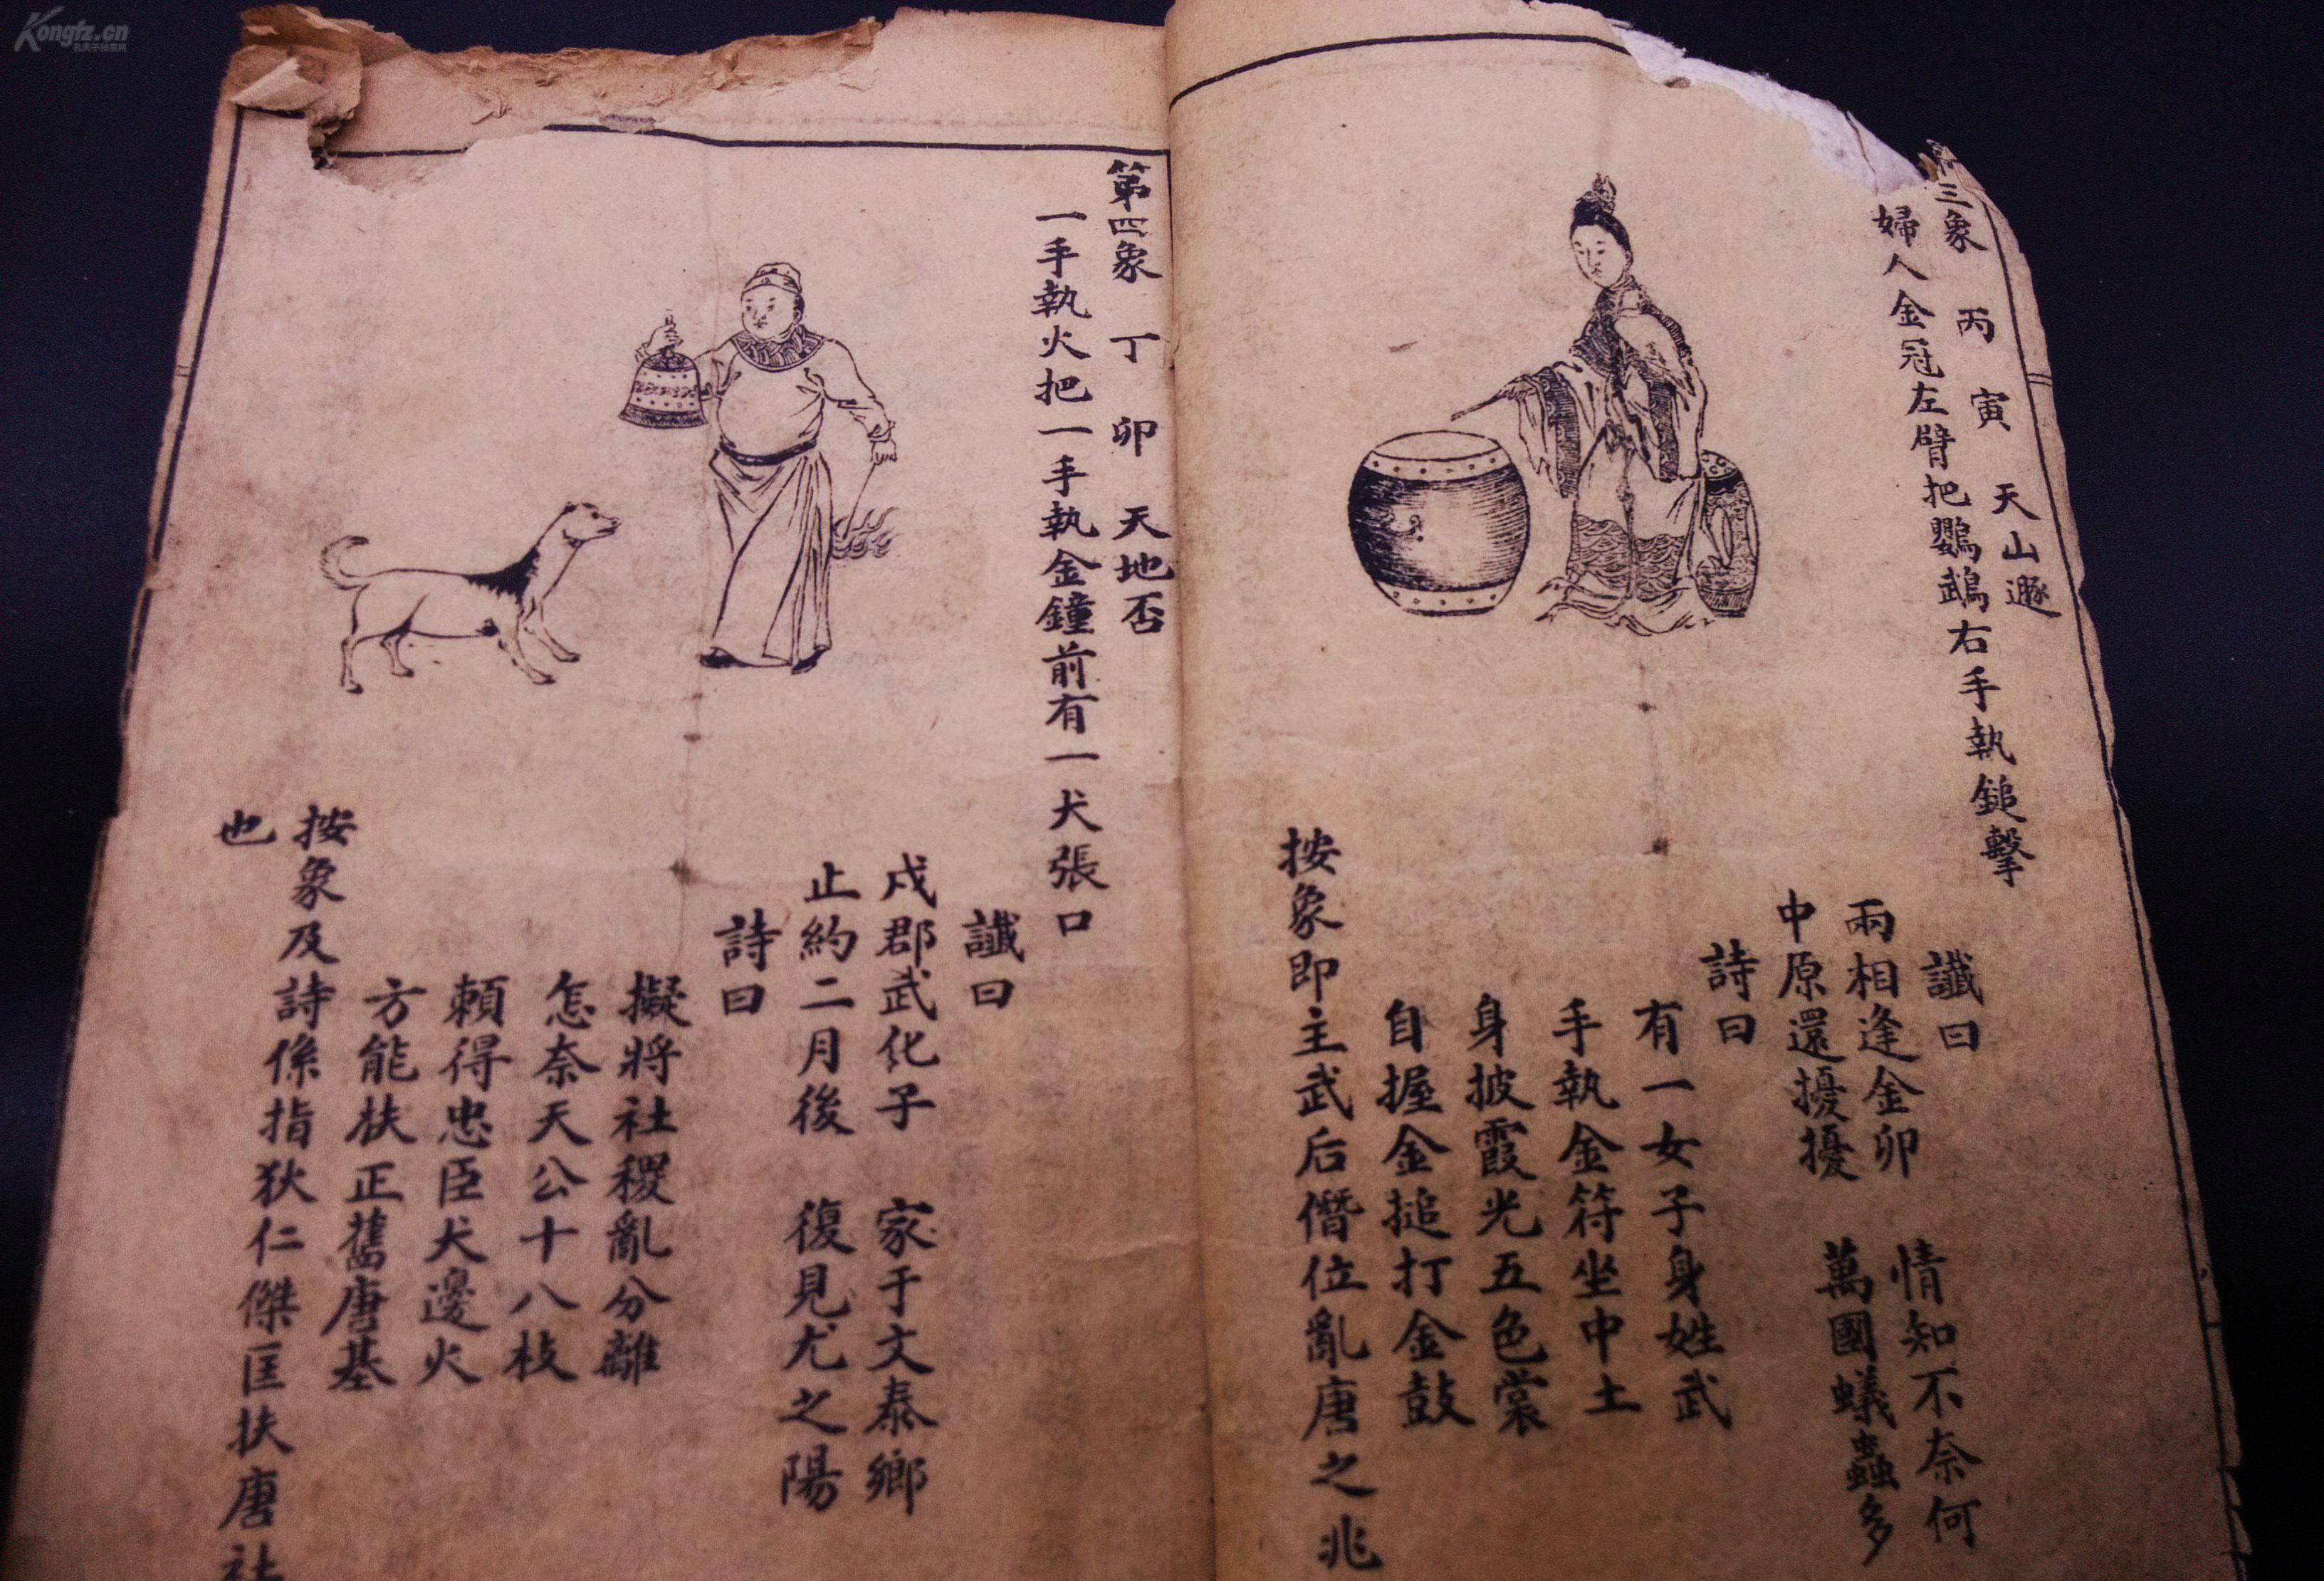 三象 丙 寅 天山遯
婦人金冠左臂把鸚鵡右手執鎚擊
讖曰
兩相逢金卯 情知不奈何
中原還擾擾 萬國蟻蟲多
詩曰
有一女子身姓武
手執金符坐中土
身披霞光五色裳
自握金搥打金鼓
按象即主武后僭位亂唐之兆
第四象 丁 卯 天地否
一手執火把一手執金鐘前有一犬張口
讖曰
戍郡武化子 家于文泰鄉
止約二月後 復見尤之陽
詩曰
擬將社稷亂分離
怎奈天公十八枝
賴得忠臣犬邊火
方能扶正舊唐基
按象及詩係指狄仁傑匡扶唐社
也
Kongfz.cn